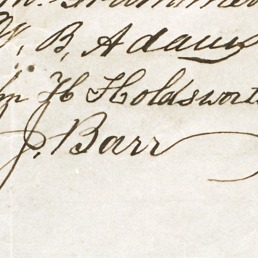 B. Adams
H Holdsworth
J. Barr